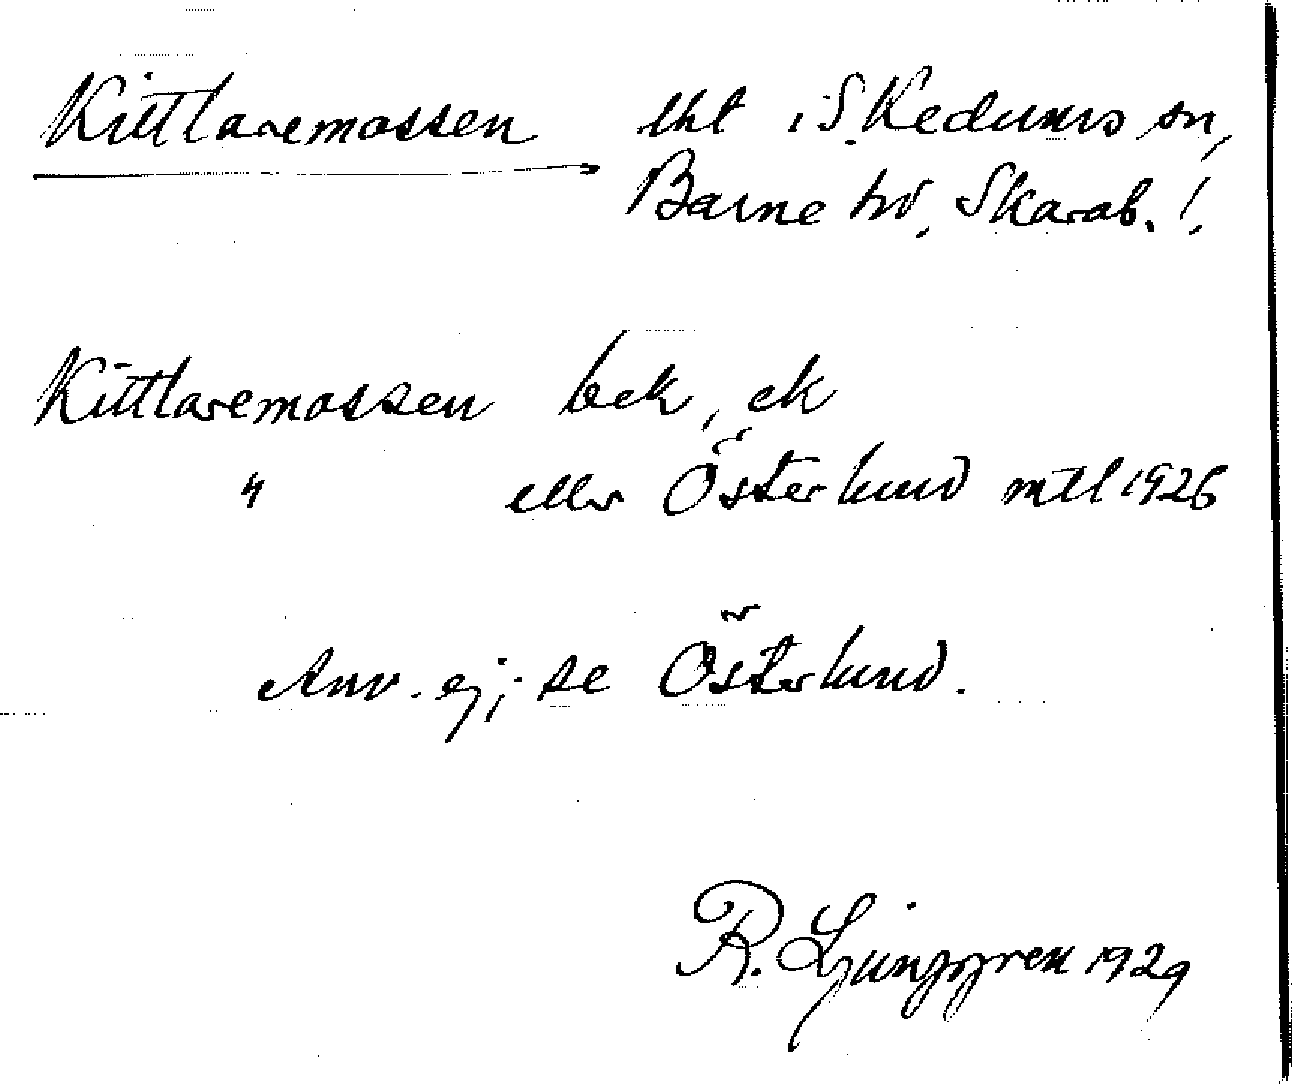 Kittlaremossen lht i S. Kedums sn,
Barne hd, Skarab. l.
Kittlaremossen bek, ek
" eller Österlund mtl 1926
Anv. ej; se Österlund.
R. Ljunggren 1929